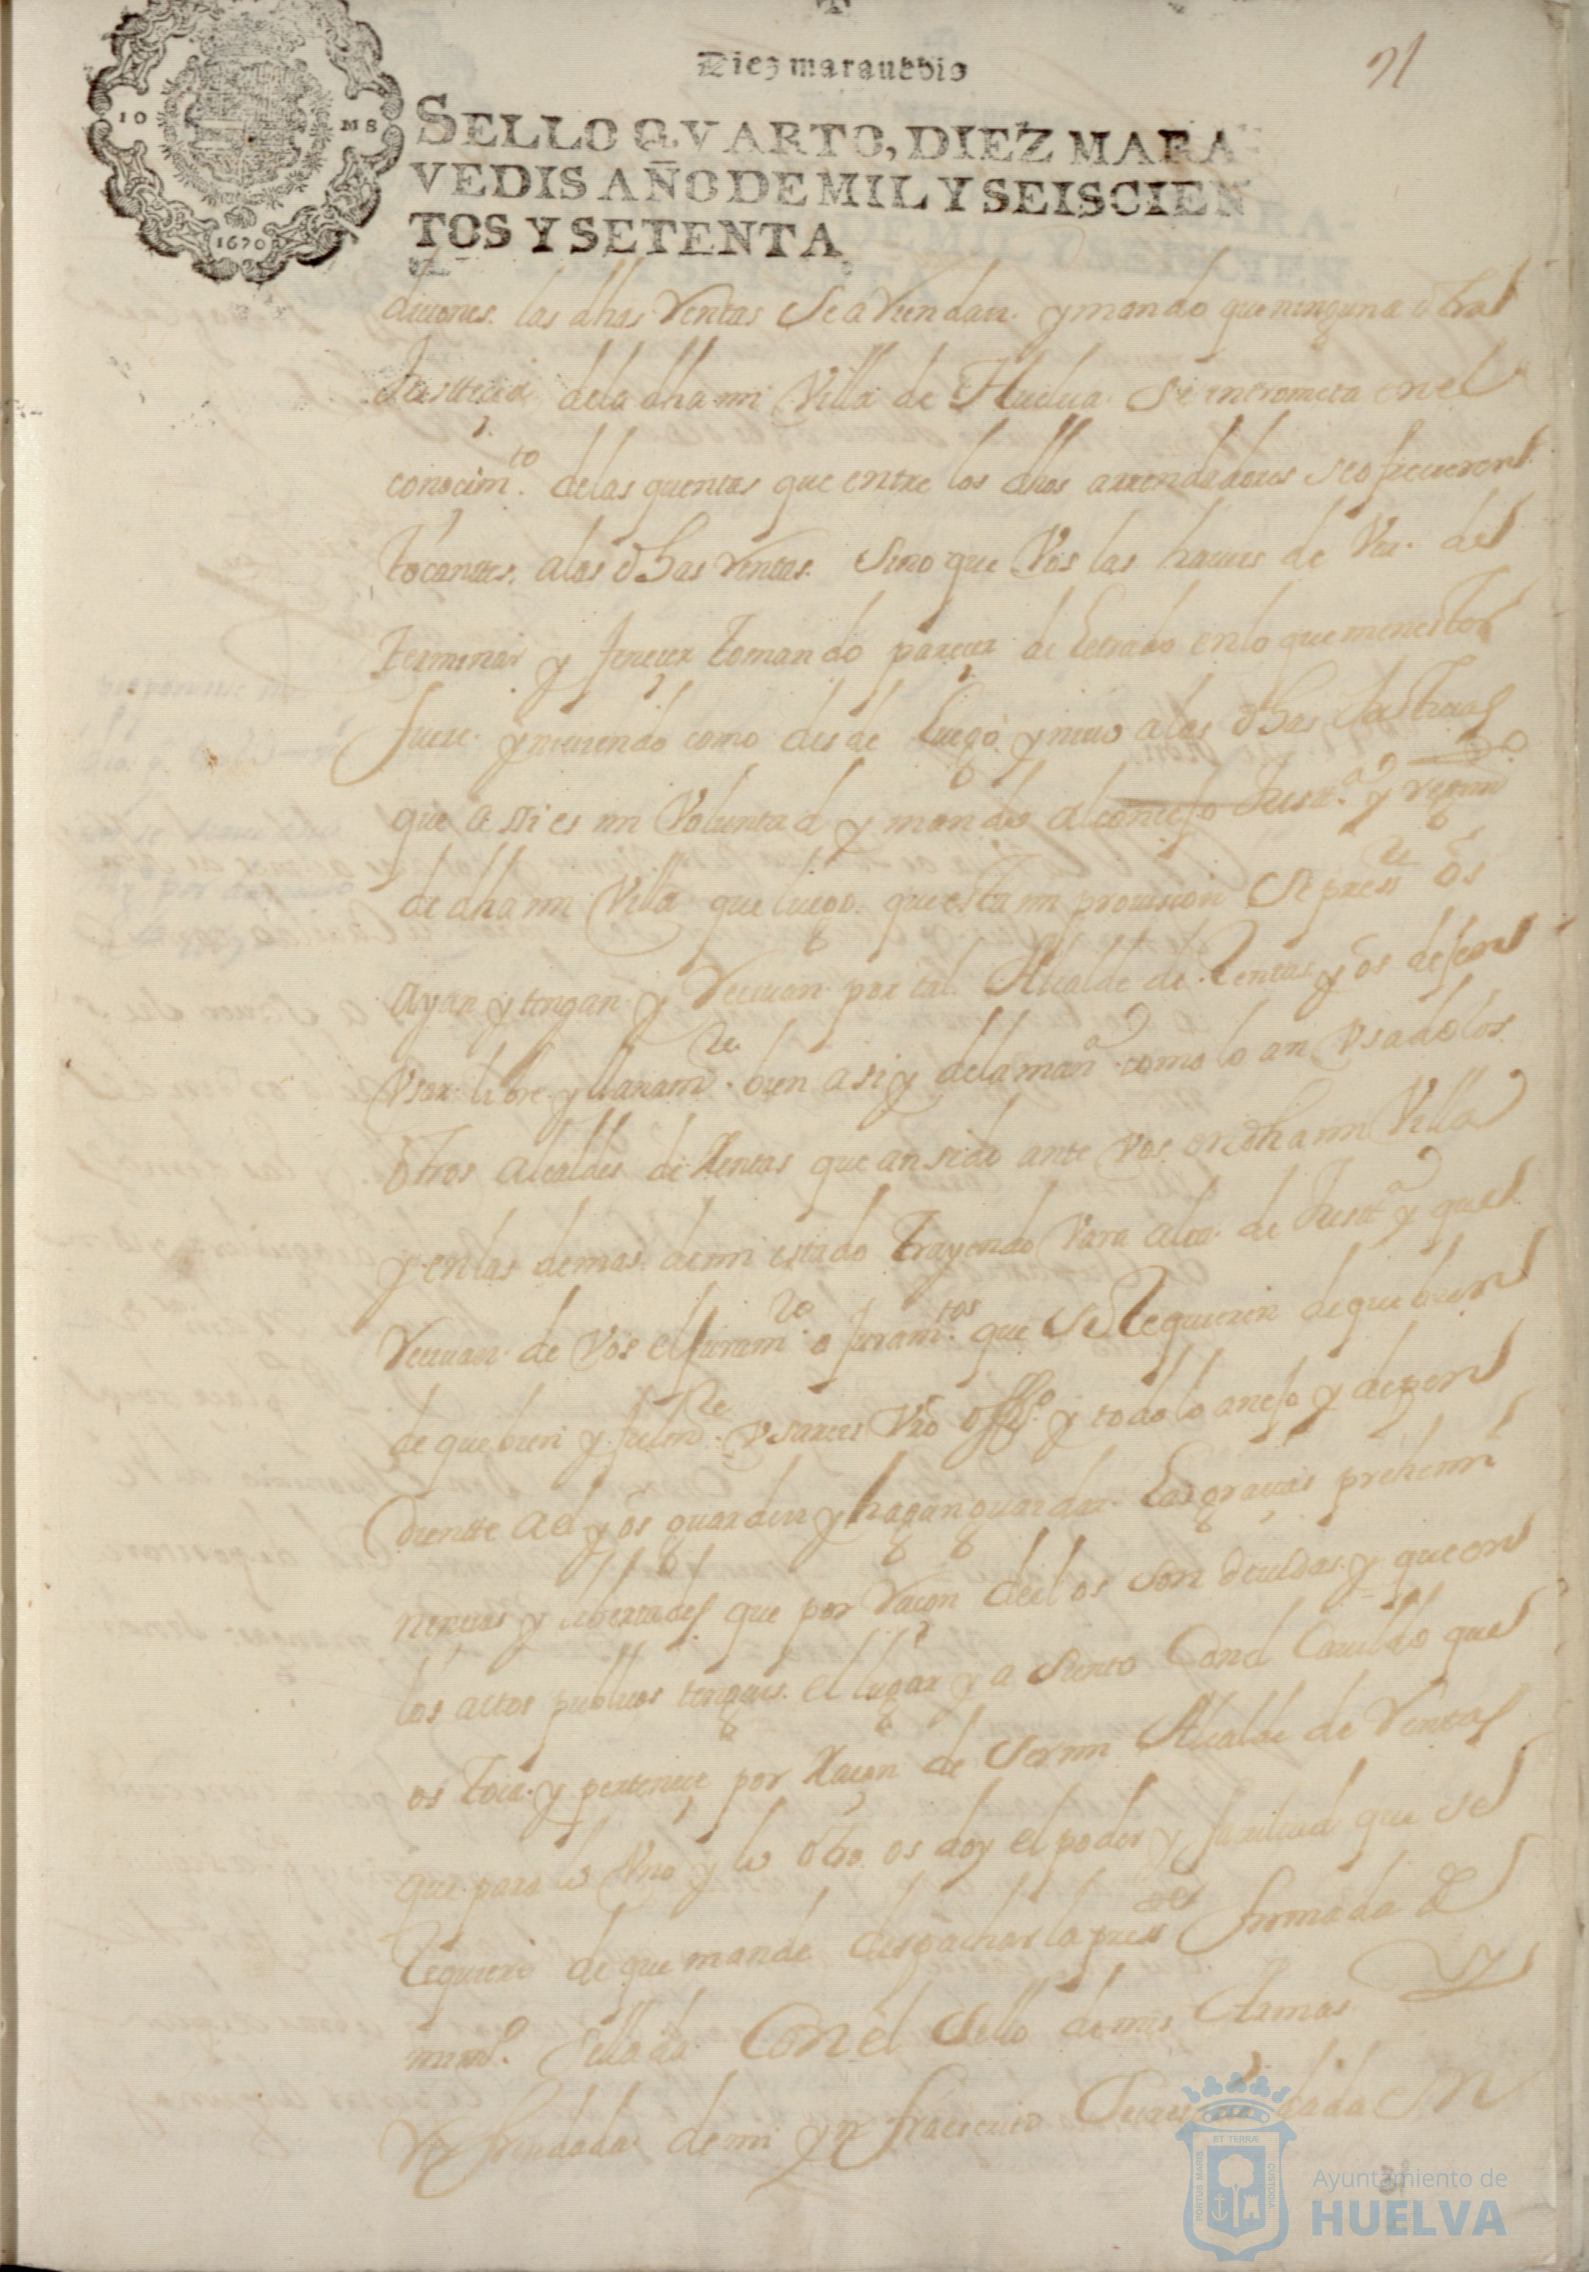 Diez marauedis
21
10 MS
1670
SELLO QVARTO, DIEZ MARA
VEDIS AÑO DE MIL Y SEISCIEN
TOS Y SETENTA
diciones. las dhas Rentas Se aRiendan. y mando que ninguna otra
Justticia dela dha mi Villa de Huelua. Se intrometa en el
conocimto. delas quentas que entre los dhos arrendadores se ofrecieren
tocanttes. alas dhas Rentas. Sino que Vos las haueis de Ver. de
terminar y fenecer tomando parecer de letrado en lo que menester
fuere. yniuiendo como desde luego yniuo alas dhas Justicias
que assi es mi Voluntad y mando al concejo Justta. y regimdo
de dha mi Villa que luego. que esta mi prouision Se presste os
ayan y tengan y Reciuan por tal. Alcalde de Rentas y os dejen
Vsar libre y llanamte. bien asi y dela mana. como lo an Vsado los
otros alcaldes de Rentas que an sido ante Vos en dha mi Villa
y en las demas de mi estado trayendo Vara alta. de Justta y que
Reciuan. de Vos el juramto o juramtos que Se Requieren de que bien
de que bien y fielmte. Vsareis Vro offo. y todo lo anejo y depen
diente a el y os guarden y hagan guardar. Las gracias prehemi
nencias y libertades que por Racon de ellos son deuidas. y que en
los actos publicos tengais. el lugar y a siento Con el Cauildo que
os toca. y pertenece por Racon de Ser mi Alcalde de Rentas
que para lo Vno y lo otro os doy el poder y facultad que se
Requiere de que mande despachar la presste firmada de
mi mo. Sellada Con el Sello de mis Armas y
Refrendada de mi ynfraecripto Secretario dada en
ET TERRÆ
PORTUS MARIS
CUSTODIA
Ayuntamiento de
HUELVA